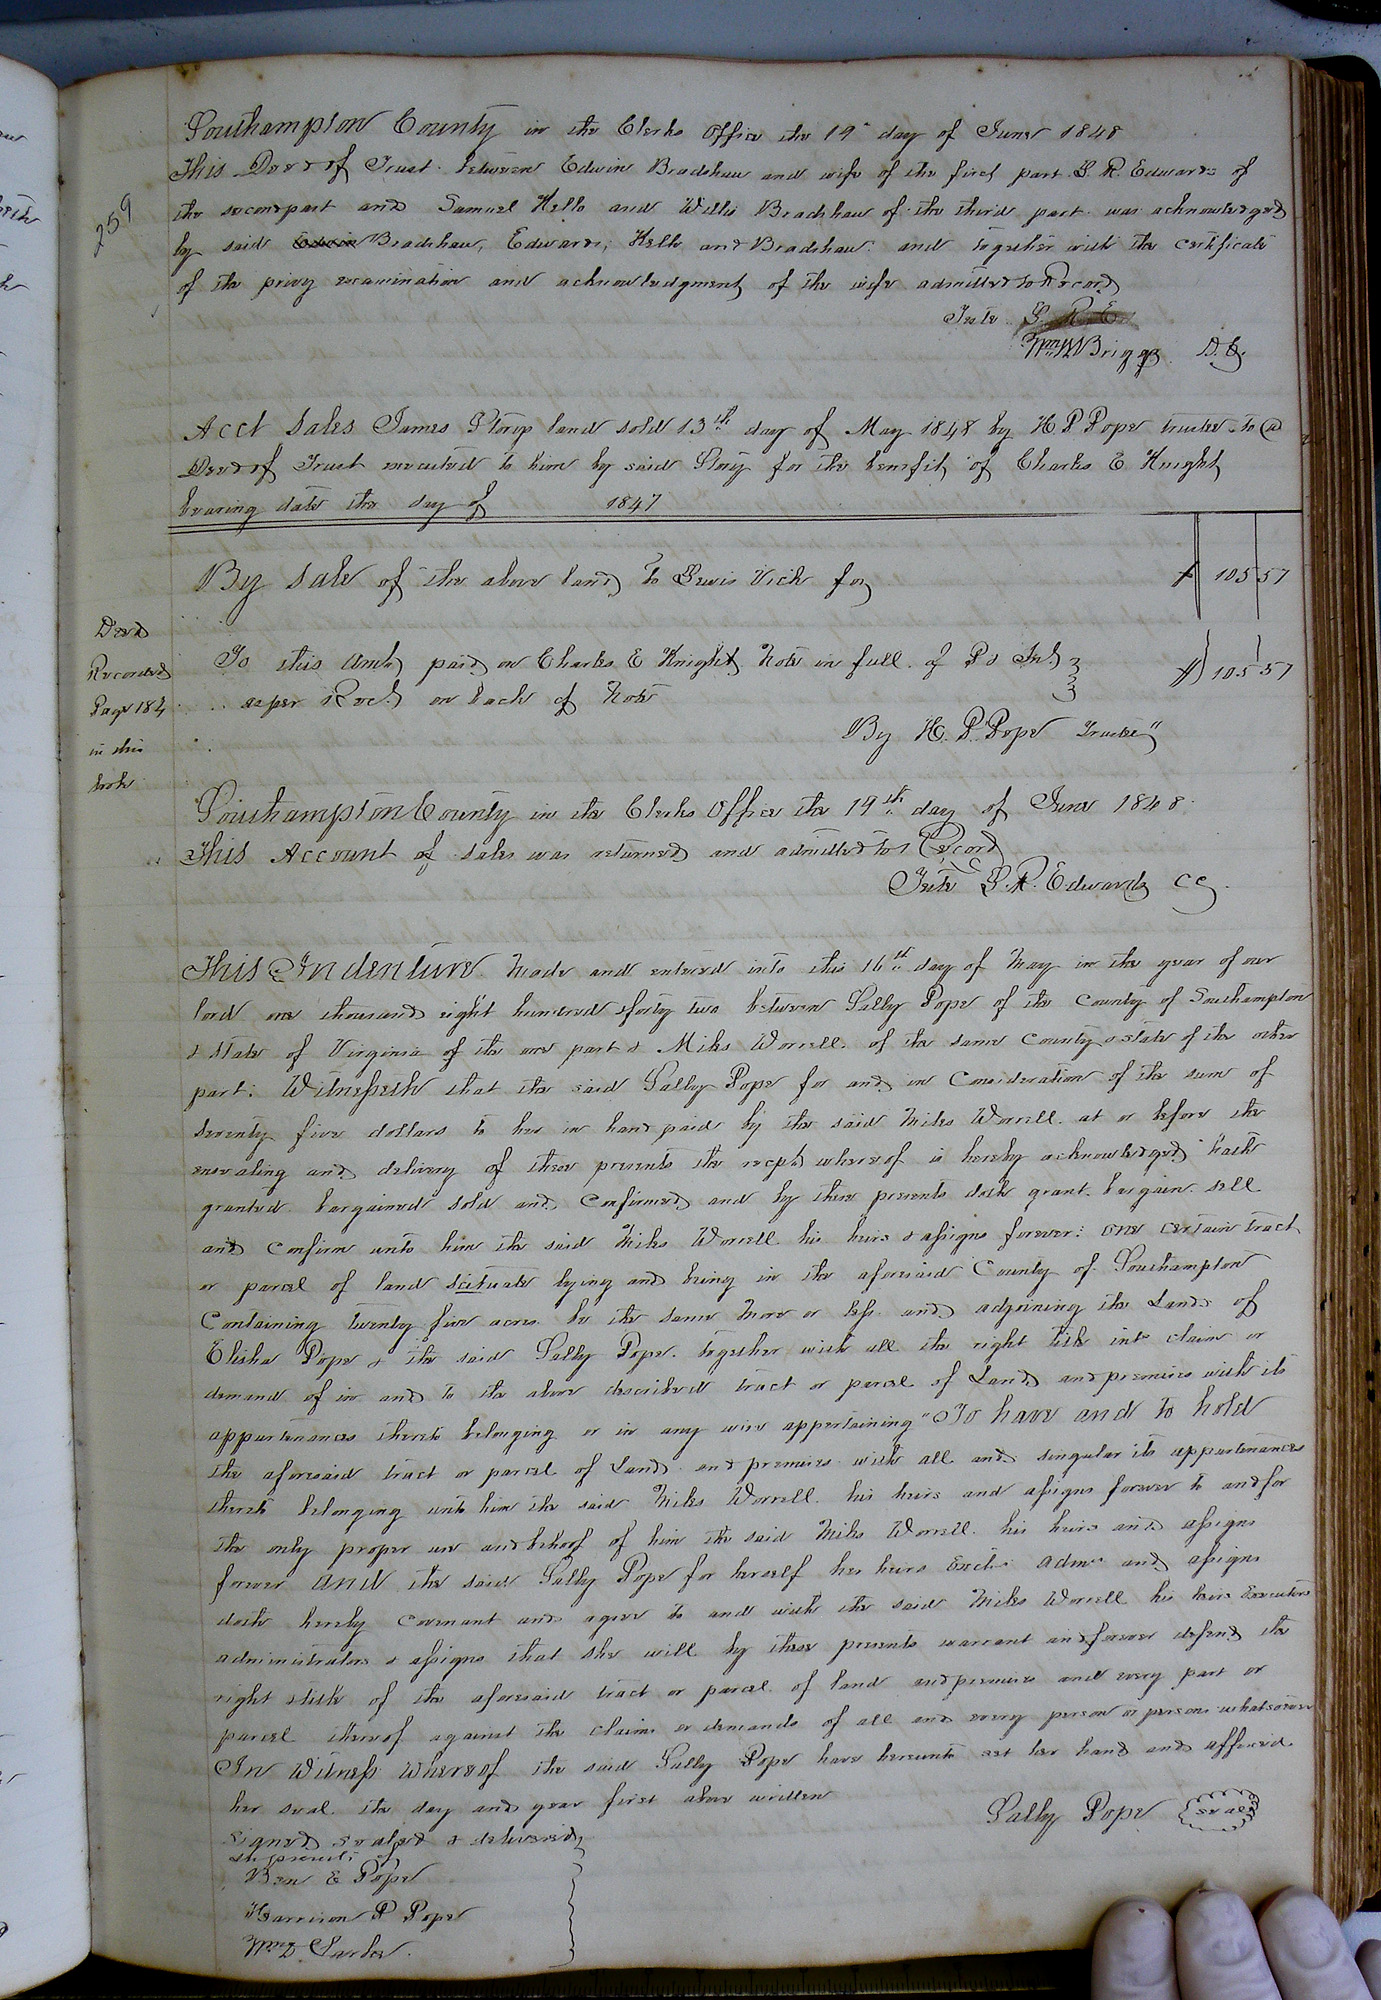 259
Southampton County in the Clerks Office the 19" day of June 1848
This Deed of Trust between Edwin Bradshaw and wife of the first part L. R. Edwards of
the second part and Samuel Kello and Willis Bradshaw of the third part was acknowledged
by said Edwin Bradshaw, Edwards, Kello and Bradshaw and together with the certificate
of the privy examination and acknowledgment of the wife admitted to Record
Teste L R E
Wm W Briggs D.C.
Acct Sales James Story land sold 13th day of May 1848 by H P Pope trustee to a
Deed of Trust executed to him by said Story for the benefit of Charles E Knight
bearing date the day of 1847
By Sale of the above land to Lewis Vick for $ 105 57
Deed
Recorded
Page 184
in this
book
To this Amt paid on Charles E Knight Note in full of Ps Int $ 105 57
as per Rect. on back of Note
By H. P. Pope Trustee"
Southampton County in the Clerks Office the 19th day of June 1848.
This Account of sales was returned and admitted to Record
Teste L. R. Edwards CC
This Indenture Made and entered into this 16th day of May in the year of our
lord one thousand eight hundred & forty two between Sally Pope of the County of Southampton
& State of Virginia of the one part & Miles Worrell of the same County & state of the other
part: Witnesseth that the said Sally Pope for and in Consideration of the sum of
seventy five dollars to her in hand paid by the said Miles Worrell at or before the
ensealing and delivery of these presents the recpt whereof is hereby acknowledged hath
granted bargained sold and Confirmed and by these presents doth grant bargain sell
and Confirm unto him the said Miles Worrell his heirs & assigns forever: one certain tract
or parcel of land scituate lying and being in the aforesaid County of Southampton
Containing twenty five acres be the same More or less and adjoining the Lands of
Elisha Pope & the said Sally Pope. together with all the right title int claim or
demand of in and to the above described tract or parcel of Land and premises with its
appurtenances thereto belonging or in any wise appertaining "To have and to hold
the aforesaid tract or parcel of Land and premises with all and singular its appurtenances
thereto belonging unto him the said Miles Worrell his heirs and assigns forever to and for
the only proper use and behoof of him the said Miles Worrell his heirs and assigns
forever And the said Sally Pope for herself her heirs Exctrs admrs and assigns
doth hereby Covenant and agree to and with the said Miles Worrell his heirs Executors
administrators & assigns that she will by these presents warrant and forever defend the
right & title of the aforesaid tract or parcel of land and premises and every part or
parcel thereof against the claims or demands of all and every person or persons whatsoever
In Witness Whereof the said Sally Pope have hereunto set her hand and affixed
her seal the day and year first above written
Sally Pope seal
signed sealed & delivered
in presents of
Ben E Pope
Harrison P Pope